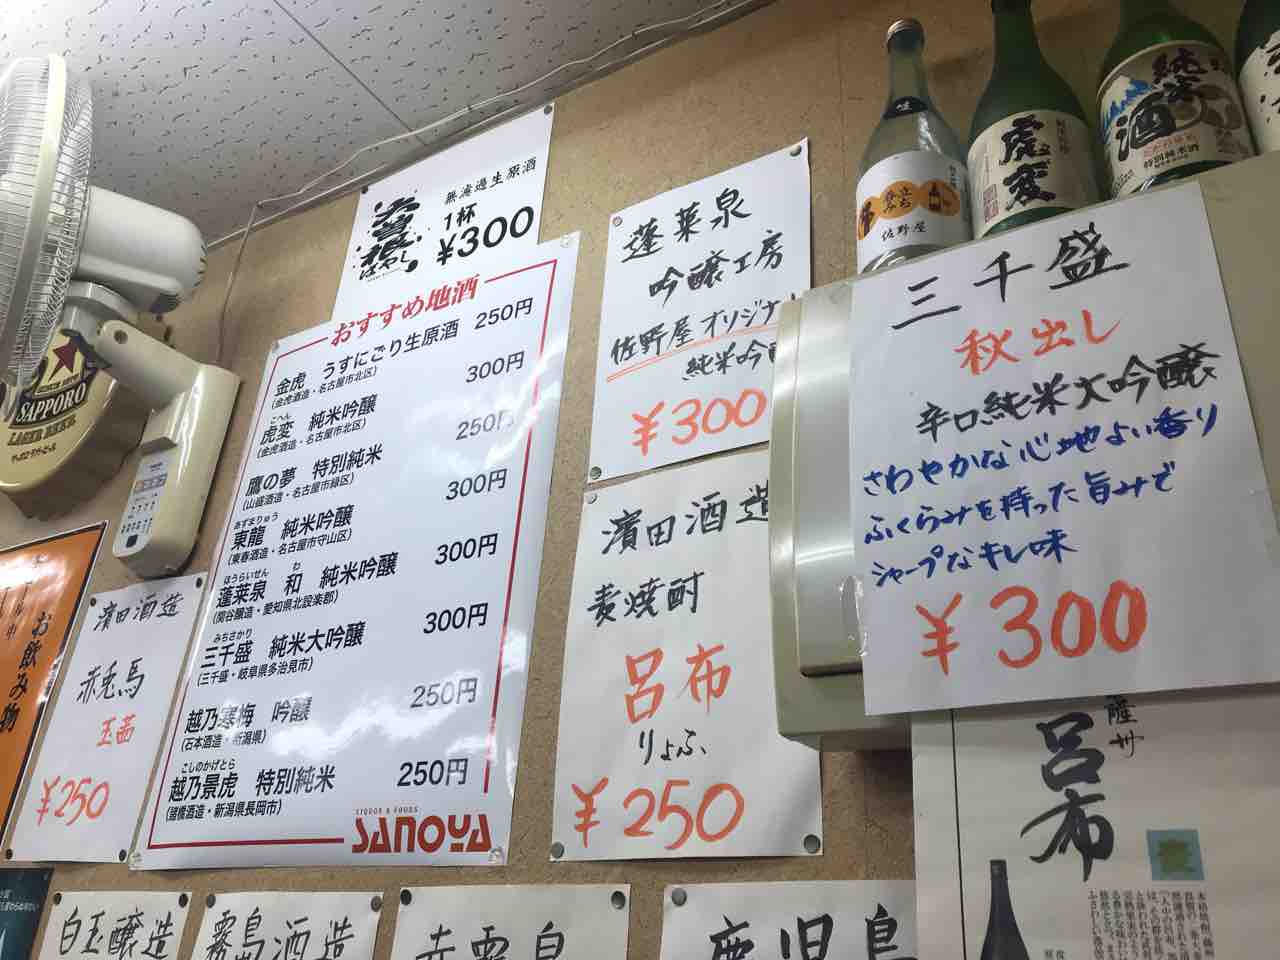 無濾過生原酒
1杯
¥300
おすすめ地酒
金虎 うすにごり生原酒 250円
(金虎酒造・名古屋市北区)
こへん
虎変 純米吟醸 300円
(金虎酒造・名古屋市北区)
鷹の夢 特別純米 250円
(山盛酒造・名古屋市緑区)
あずまりゅう
東龍 純米吟醸 300円
(東春酒造・名古屋市守山区)
ほうらいせん わ
蓬莱泉 和 純米吟醸 300円
(関谷醸造・愛知県北設楽郡)
みちさかり
三千盛 純米大吟醸 300円
(三千盛・岐阜県多治見市)
越乃寒梅 吟醸 250円
(石本酒造・新潟県)
こしのかげとら
越乃景虎 特別純米 250円
(諸橋酒造・新潟県長岡市)
LIQUOR & FOODS
SANOYA
蓬莱泉
吟醸工房
佐野屋オリジナ
純米吟
¥300
濵田酒造
麦焼酎
呂布
りょふ
¥250
三千盛
秋出し
辛口純米大吟醸
さわやかな心地よい香り
ふくらみを持った旨みで
シャープなキレ味
¥300
濵田酒造
赤兎馬
玉茜
¥250
お飲み物
SAPPORO
LAGER BEER
佐野屋
虎変
純米
酒
特別純米酒
薩州
呂布
白玉醸造
霧島酒造
赤霧島
鹿児島